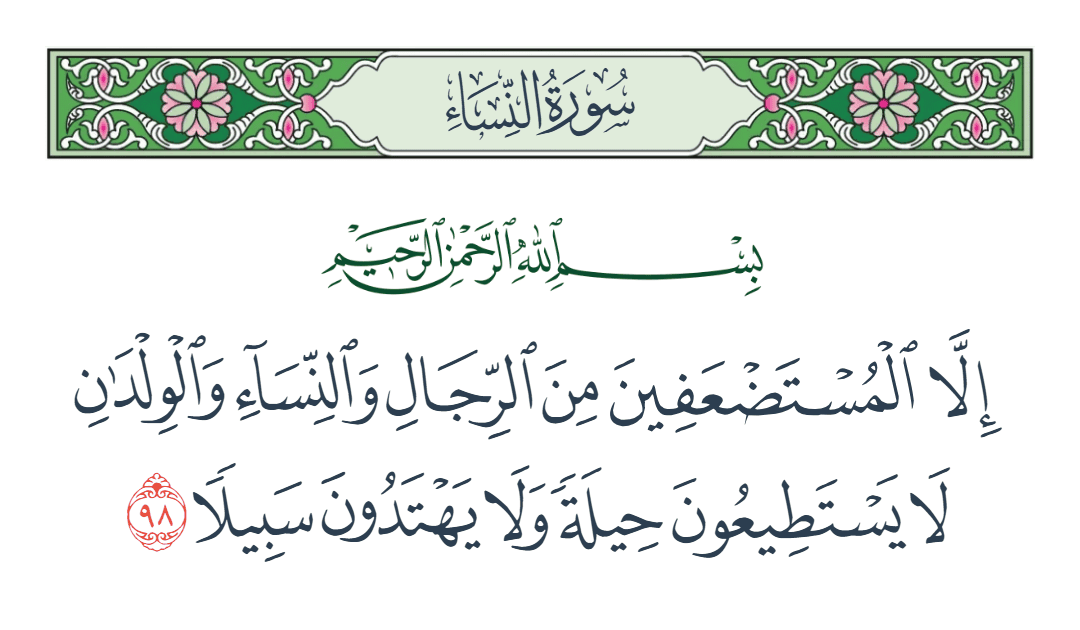 سُورَةُ النِّسَاءِ
بِسْمِ ٱللَّهِ ٱلرَّحْمَٰنِ ٱلرَّحِيمِ
إِلَّا ٱلْمُسْتَضْعَفِينَ مِنَ ٱلرِّجَالِ وَٱلنِّسَآءِ وَٱلْوِلْدَٰنِ
لَا يَسْتَطِيعُونَ حِيلَةً وَلَا يَهْتَدُونَ سَبِيلًا ٩٨